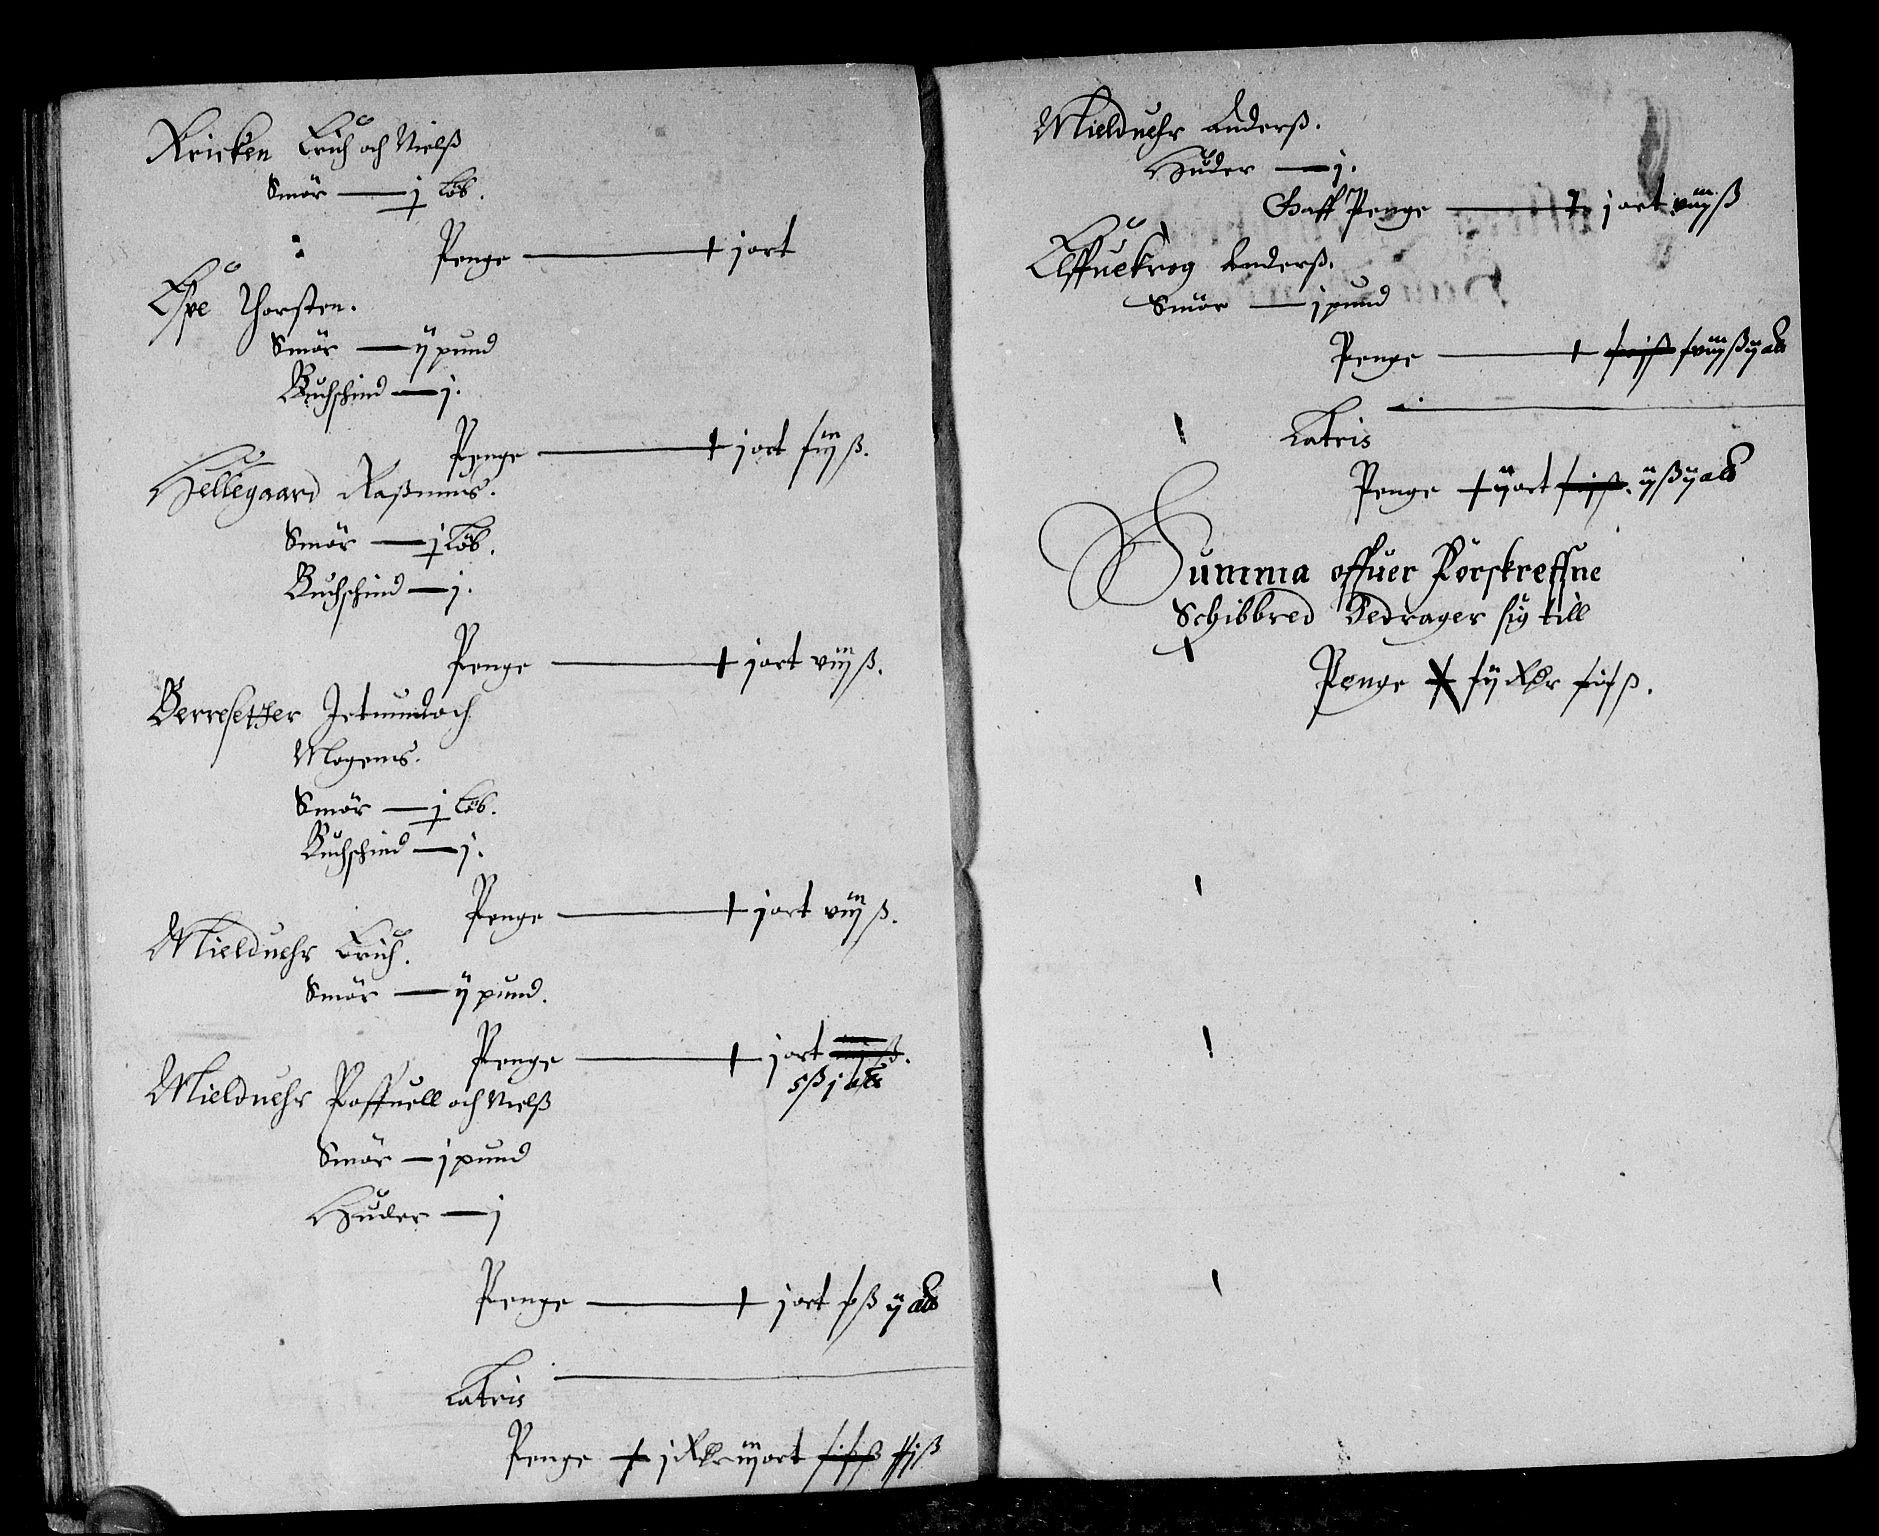 Kricken Erich och Nielß
Smör — j løb.
Penge — j ort
Espe Thorsten.
Smör — ij pund
Buchschind — j.
Penge — j ort
Hellegaard Raßmus.
Smör — j Løb.
Buchschind — j.
Penge — j ort viij ß.
Berresetter Jetmund och
Mogens.
Smör — j løb.
Buchschind — j.
Penge — j ort viij ß.
Mielduehr Erich.
Smör — ij pund.
Penge — j ort
5 ß j alb
Mielduehr Poffuell och Nielß
Smör — j pund
Huder — j
Penge — j ort ß ij alb
Latris
Penge j Rdr iij ort
Mielduehr Anderß.
Huder — j.
Gaff Penge — j ort viij ß
Elffuekrog Anderß.
Smör — j pund
Penge — xviij ß ij alb
Latris
Penge ij ort iij ß ij alb
Summa offuer Förskreffne
Schibbred Bedrager sig till
Penge